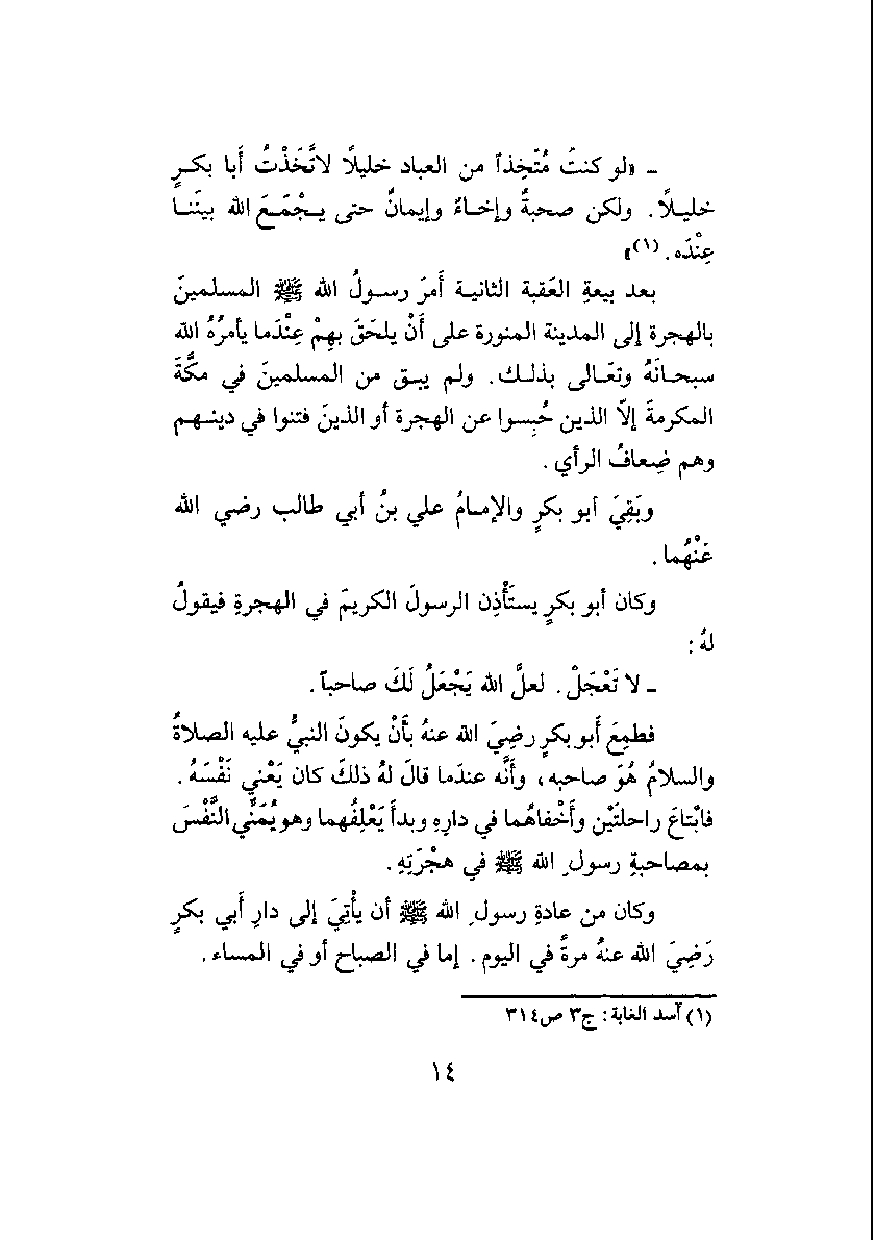 ـ «لو كنتُ مُتَّخِذاً من العباد خليلاً لاتَّخَذْتُ أَبا بكـرٍ
خليـلاً. ولكن صحبةٌ وإخاءٌ وإيمانٌ حتى يـجْمَـعَ الله بينَنا
عِنْدَه. (١)»
بعد بيعةِ العَقبة الثانيـة أَمرَ رسـولُ الله ﷺ المسلمينَ
بالهجرة إلى المدينة المنورة على أَنْ يلحَقَ بهِمْ عِنْدَما يأمرُهُ الله
سبحـانَهُ وتعَـالى بذلـك. ولم يبـق من المسلمينَ في مكَّةَ
المكرمةَ إلاّ الذين حُبِسـوا عن الهجرة أو الذينَ فتنوا في دينهـم
وهم ضِعافُ الرأي.
وبَقِيَ أبو بكرٍ والإمـامُ علي بنُ أبي طالب رضي الله
عَنْهُما.
وكان أبو بكرٍ يستَأْذِن الرسولَ الكريمَ في الهجرةِ فيقولُ
لهُ:
ـ لا تَعْجَلْ. لعلَّ الله يَجْعَلُ لَكَ صاحباً.
فطمِعَ أَبو بكرٍ رضِيَ الله عنهُ بأَنْ يكونَ النبيُّ عليه الصلاةُ
والسلامُ هُوَ صاحبه، وأَنَّه عندَما قالَ لهُ ذلكَ كان يَعْني نَفْسَهُ.
فابْتاعَ راحلتَيْن وأَخْفاهُما في دارِهِ وبدأَ يَعْلِفُهما وهو يُمَنِّي النَّفْسَ
بمصاحبةِ رسولِ الله ﷺ في هجْرَتِهِ.
وكان من عادةِ رسولِ الله ﷺ أن يأْتِيَ إلى دارِ أَبي بكرٍ
رَضِيَ الله عنهُ مرةً في اليوم. إما في الصباح أو في المساء.
(١) آسد الغابة: ج٣ ص٣١٤
١٤